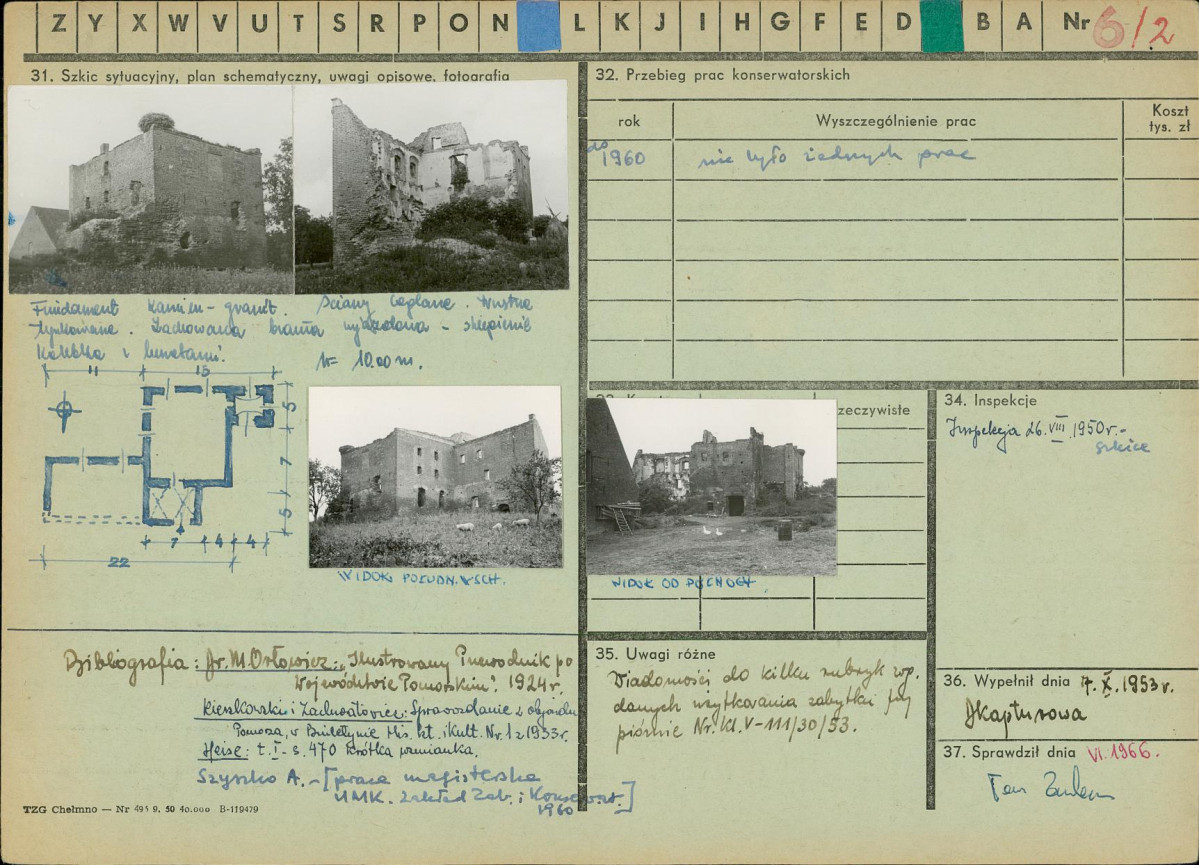 Z Y X W V U T S R P O N L K J I H G F E D B A Nr 6/2
31. Szkic sytuacyjny, plan schematyczny, uwagi opisowe, fotografia
Fundament kamień - granit. Ściany ceglane. Wnętrze
tynkowane. Zachowana brama wjazdowa - sklepienie
kolebka z lunetami.
h= 10.00 m.
11 15
5
7
5
7 4 4
22
WIDOK POŁUDN. WSCH.
32. Przebieg prac konserwatorskich
rok Wyszczególnienie prac Koszt
tys. zł
do
1960 nie było żadnych prac
zeczywiste
WIDOK OD PÓŁNOCY
34. Inspekcje
Inspekcja 26.VIII.1950r.-
szkice
Bibliografia: Dr. M. Orłowicz: „Ilustrowany Przewodnik po
Województwie Pomorskim". 1924r.
Kieszkowski i Zachwatowicz: Sprawozdanie z objazdu
Pomorza, w Biuletynie His. szt. i Kult. Nr. 1 z 1933r.
Heise: t. I - s. 470 krótka wzmianka.
Szyszko A. - [praca magisterska
UMK. Zakład Zab. i Konserwat.]
1960
35. Uwagi różne
Wiadomości do kilku rubryk wp.
danych użytkowania zabytku przy
piśmie Nr. Kl. V-111/30/53.
36. Wypełnił dnia 7.X.1953r.
JKapturowa
37. Sprawdził dnia VI.1966.
TZG Chełmno — Nr 495 9. 50 40.000 B-119479